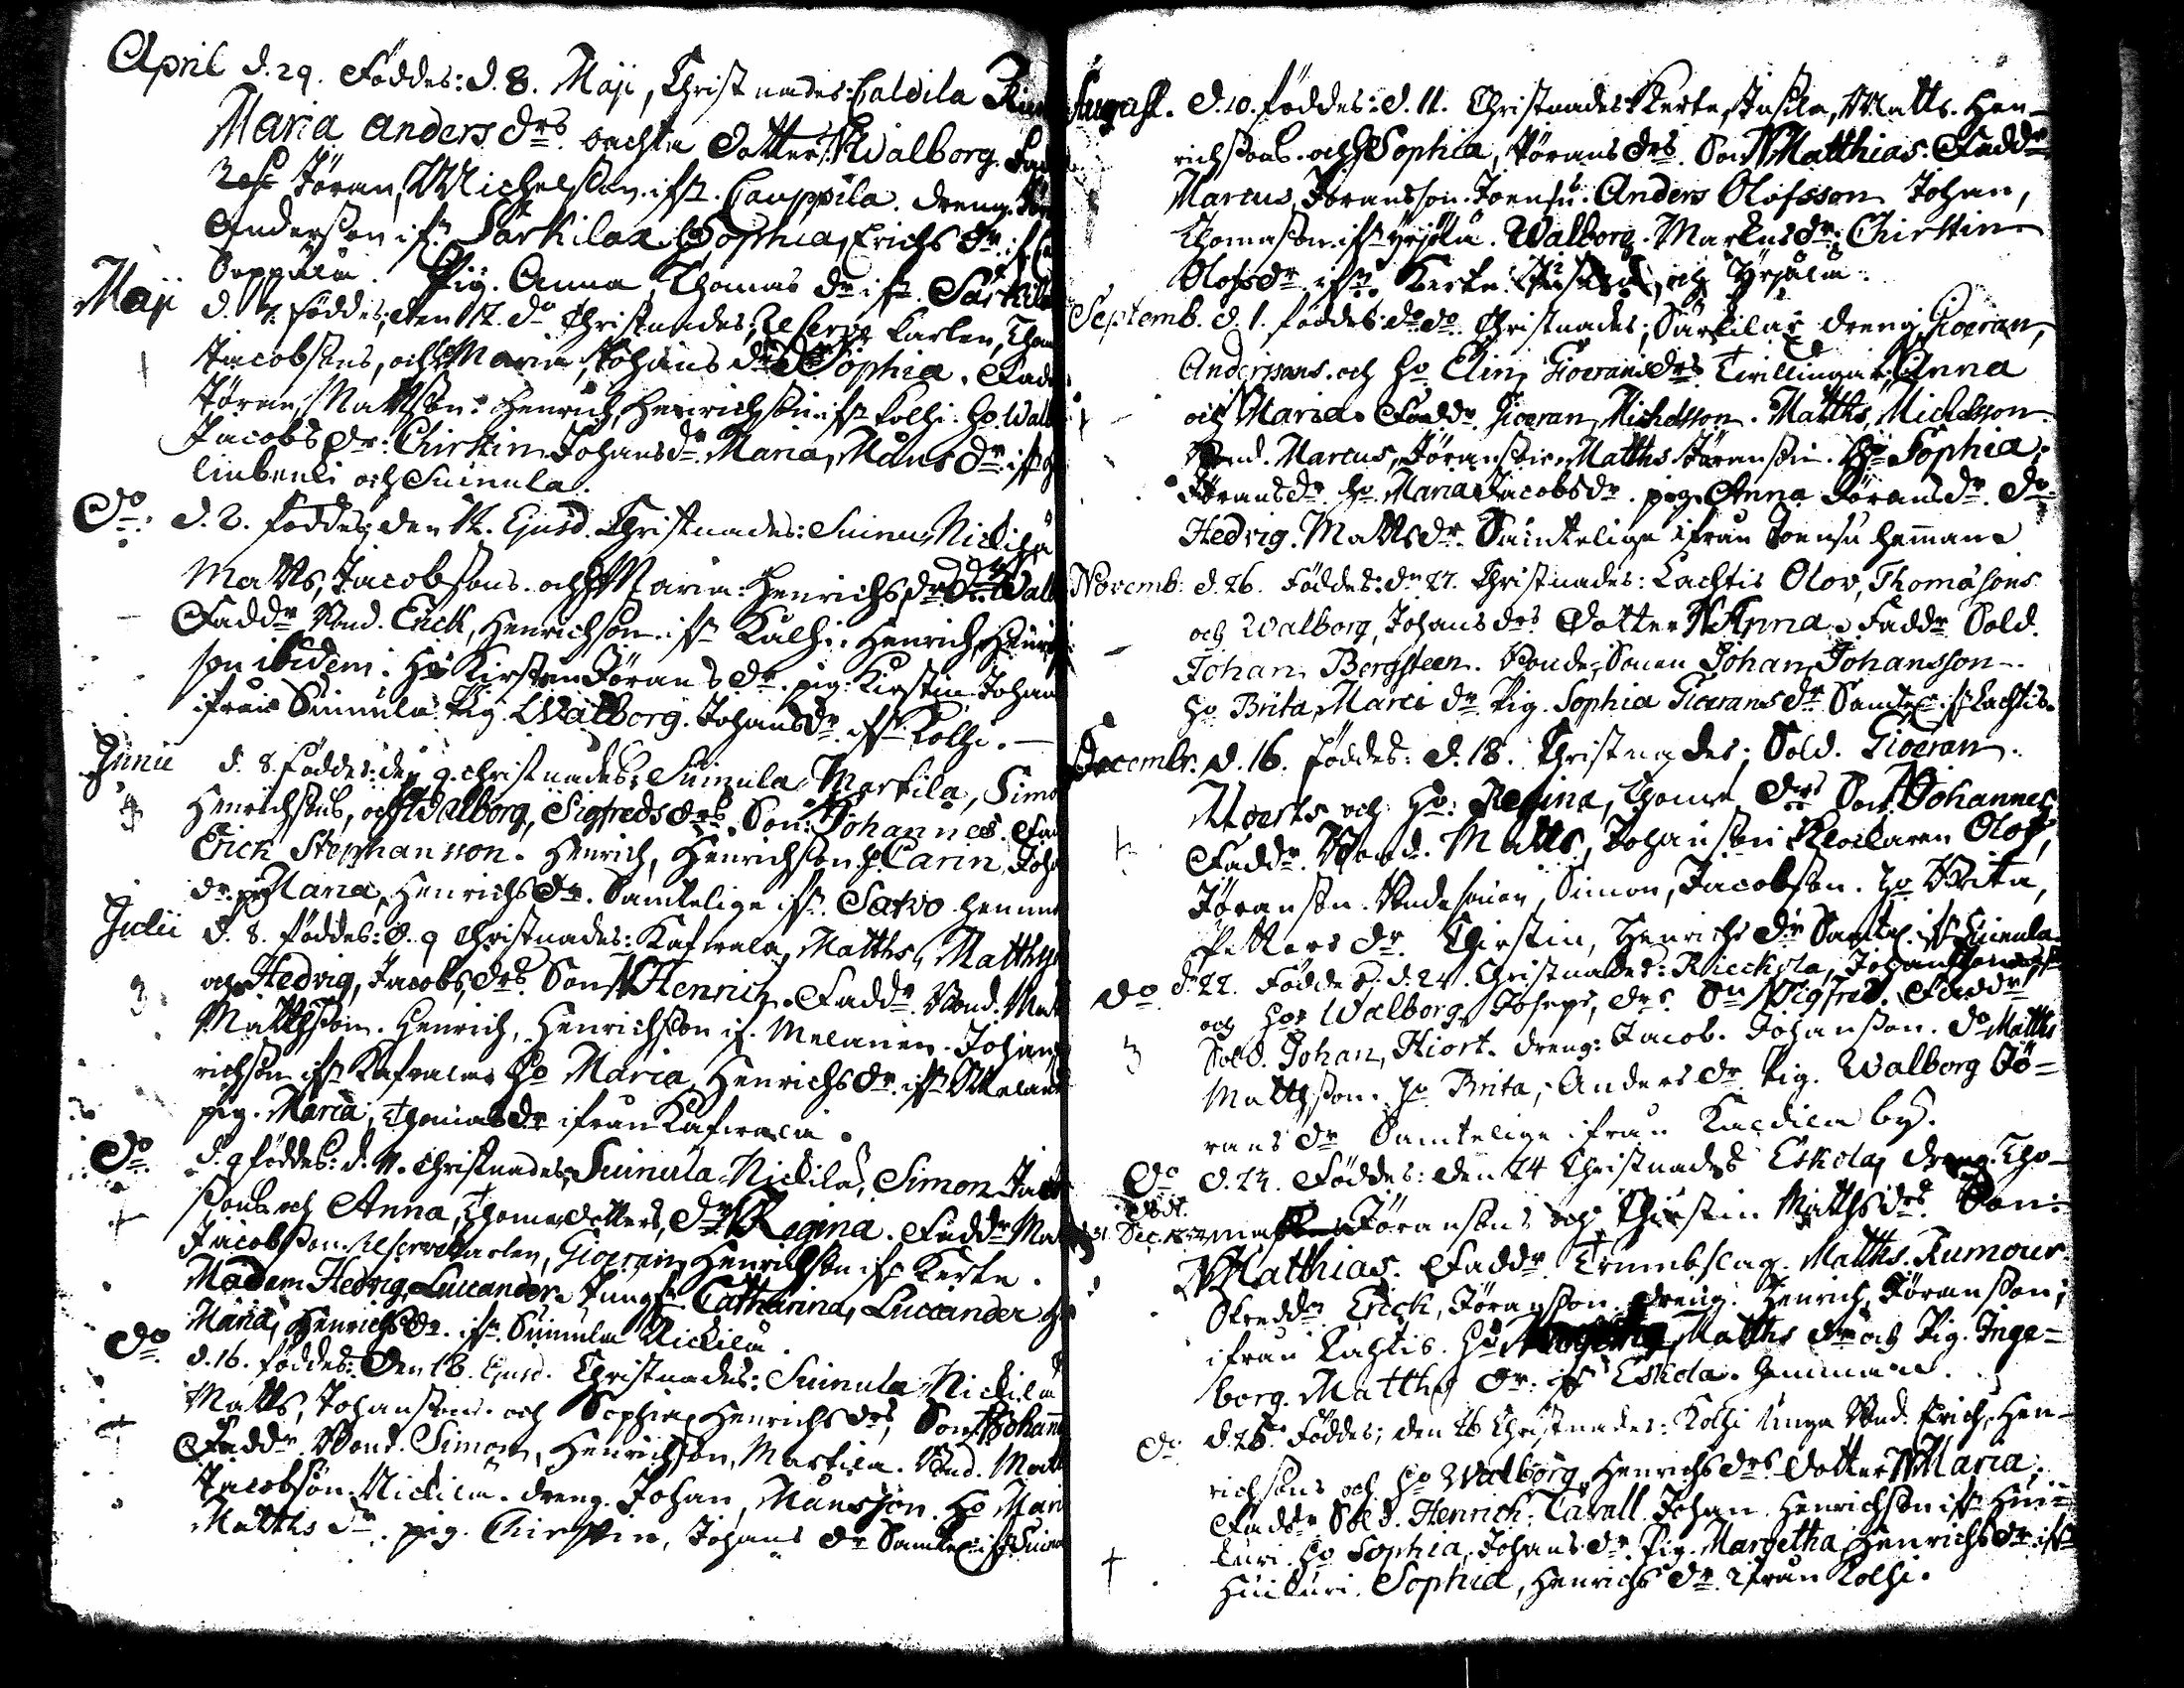 April d. 29. Föddes: d. 8. Maji, Christnades: Caldila
Maria Anders drs oächta Dotter N. Walborg.
Jöran, Michelsson ifr. Cauppila. dreng.
Andersson ifr. Särkilax Ho Sophia, Erichs dr. ifr.
Seppälä. Pig. Anna, Thomas dr ifr. Särkila
Maji d. 7. föddes, den 12. do Christnades; Reserve Karlen,
Jacobssons, och Maria, Johans drs Dr. Sophia. Fadd
Jöran, Mattsson. Henrich, Henrichsson ifr Kolhi. Ho. Walb
Jacobs dr. Chirstin Johans dr. Maria, Måns dr. ifr
och Suinula.
Do. d. 2. föddes, den 12. Ejusd. Christnades: Suinula Nickilä
Matts, Jacobssons. och Maria: Henrichs drs Dr. Walb
Faddr Bond. Erick, Henrichson. ifr Kulhi. Henrich, Henrich
son ibidem. Ho Kirstin Jörans dr. pig. Kirstin Johan
ifrån Suinula. Pig. Walborg. Johans dr. ifr Kolhi.
Junii d. 8. föddes: den 9. Christnades: Suinula Martila, Simon
Henrichssons, och Walborg, Sigfreds drs. Son: N Johannes.
Erich Stephansson. Henrich, Henrichsson H. Carin, Joh
dr. p. Maria, Henrichs dr. Samtelige ifr. Sawo hemman
Julii d. 8. föddes: d. 9 Christnades: Kafwala, Matths, Matths
och Hedvig, Jacobs, drs. Son N Henrich. Faddr. Bond. Mat
Matthsson. Henrich, Henrichsson if. Melanen. Johan
richsson ifr Kafwala. Ho Maria, Henrichs dr. ifr Melan
pig. Maria, Thomas dr ifrån Kafwala.
Do. d. 9 föddes: d. 11. Christnades: Suinula Nickilä, Simon Jacob
sons och Anna, Thomæ dotters, Dr. N Regina. Faddr Ma
Jacobsson. Reservekarlen, Giöran, Henrichsson ifr Kerte.
Madem Hedvig, Luccander. Jungfr. Catharina, Luccander
Maria, Henrichs dr. ifr. Suinula Nickilä.
Do. d. 16. föddes: Den 18. Ejusd. Christnades: Suinula Nickilä
Matts, Johanssons. och Sophia Henrichs drs, Son N Johann
Faddr. Bond. Simon, Henrichsson, Martila. Bond. Matt
Jacobsson. Nickilä. dreng. Johan, Månsson. Ho Mari
Matths dr. pig. Chirstin, Johans dr Samtel. ifr Suinu
August. d. 10. föddes: d. 11. Christnades Kerte, Matts. Hen-
richssons. och Sophia, Jörans drs. Son N Matthias. Faddr
Marcus, Joransson. Joensu. Anders Olofsson. Johan,
Thomasson. ifr Yrjölä. Walborg. Markus dr. Chirstin
Olofs dr. ifr. Kerte. och Yrjälä.
Septemb. d. 1. föddes: do do Christnades; Särkilax dreng. Gioeran,
Anderssons. och Ho Elin, Gioerans drs. Twillingar: N Anna
och Maria. Faddr. Gioeran, Michelsson. Matths, Michelsson
Bond. Marcus, Jöransson. Matths Jöransson. Ho Sophia,
Jörans dr. Ho. Maria Jacobs dr. pig. Anna Jörans dr. Do
Hedvig. Matts dr. Samtelige ifrån Joensu hemman
Novemb. d. 26. Föddes: dn 27. Christnades: Lachtis Olov, Thomæsons
och Walborg, Johans drs Dotter N Anna. Faddr Sold.
Johan Bergsteen. Bonde-Sonen Johan Johansson
Ho Brita, Marci dr Pig. Sophia Gioerans dr Samtel. ifr Lachtis.
Decembr. d. 16. föddes: d. 18. Christnades; Sold. Gioeran
och Ho Regina, Thomæ drs Son N Johannes
Faddr. Bond. Matts, Johansson. Klockaren Olof,
Jöransson. Bondesonen, Simon, Jacobsson. Ho Brita,
Petters dr. Chirstin, Henrichs dr Samtel. ifr Suinula
Do d. 22. Föddes. d. 24. Christnades: Rieckola, Johan
och Ho Walborg Joseps, drs. Son N Sigfred. Faddr
Sold. Johan, Hiort. dreng: Jacob. Johansson. Do Matths
Matthsson. Ho Brita, Anders dr Pig. Walborg Jö=
rans dr Samtelige ifrån Kaldila by.
Do d. 23. Föddes: den 24 Christnades Eskola, dreng. Tho-
mæ Jöranssons och Chirstin Matths drs. Son
N Matthias. Faddr Trumbslag. Matths. Rumour
Skreddr Erick, Jöransson. dreng. Henrich, Jöransson;
ifrån Lahtis. Ho Matths dr och Pig. Inge=
borg. Matths dr. ifr Eskola. hemman.
Do d. 25. Föddes; den 26 Christnades: Kolhi Unga Bond. Erich, Hen-
richssons och Ho Walborg Henrichs drs Dotter N Maria.
Faddr Sold. Henrich. Cavall. Johan Henrichsson ifr Hui=
kuri. Ho Sophia, Johans dr. Pig. Margetha Henrichs dr. ifr
Huikuri. Sophia, Henrichs dr. ifrån Kolhi.